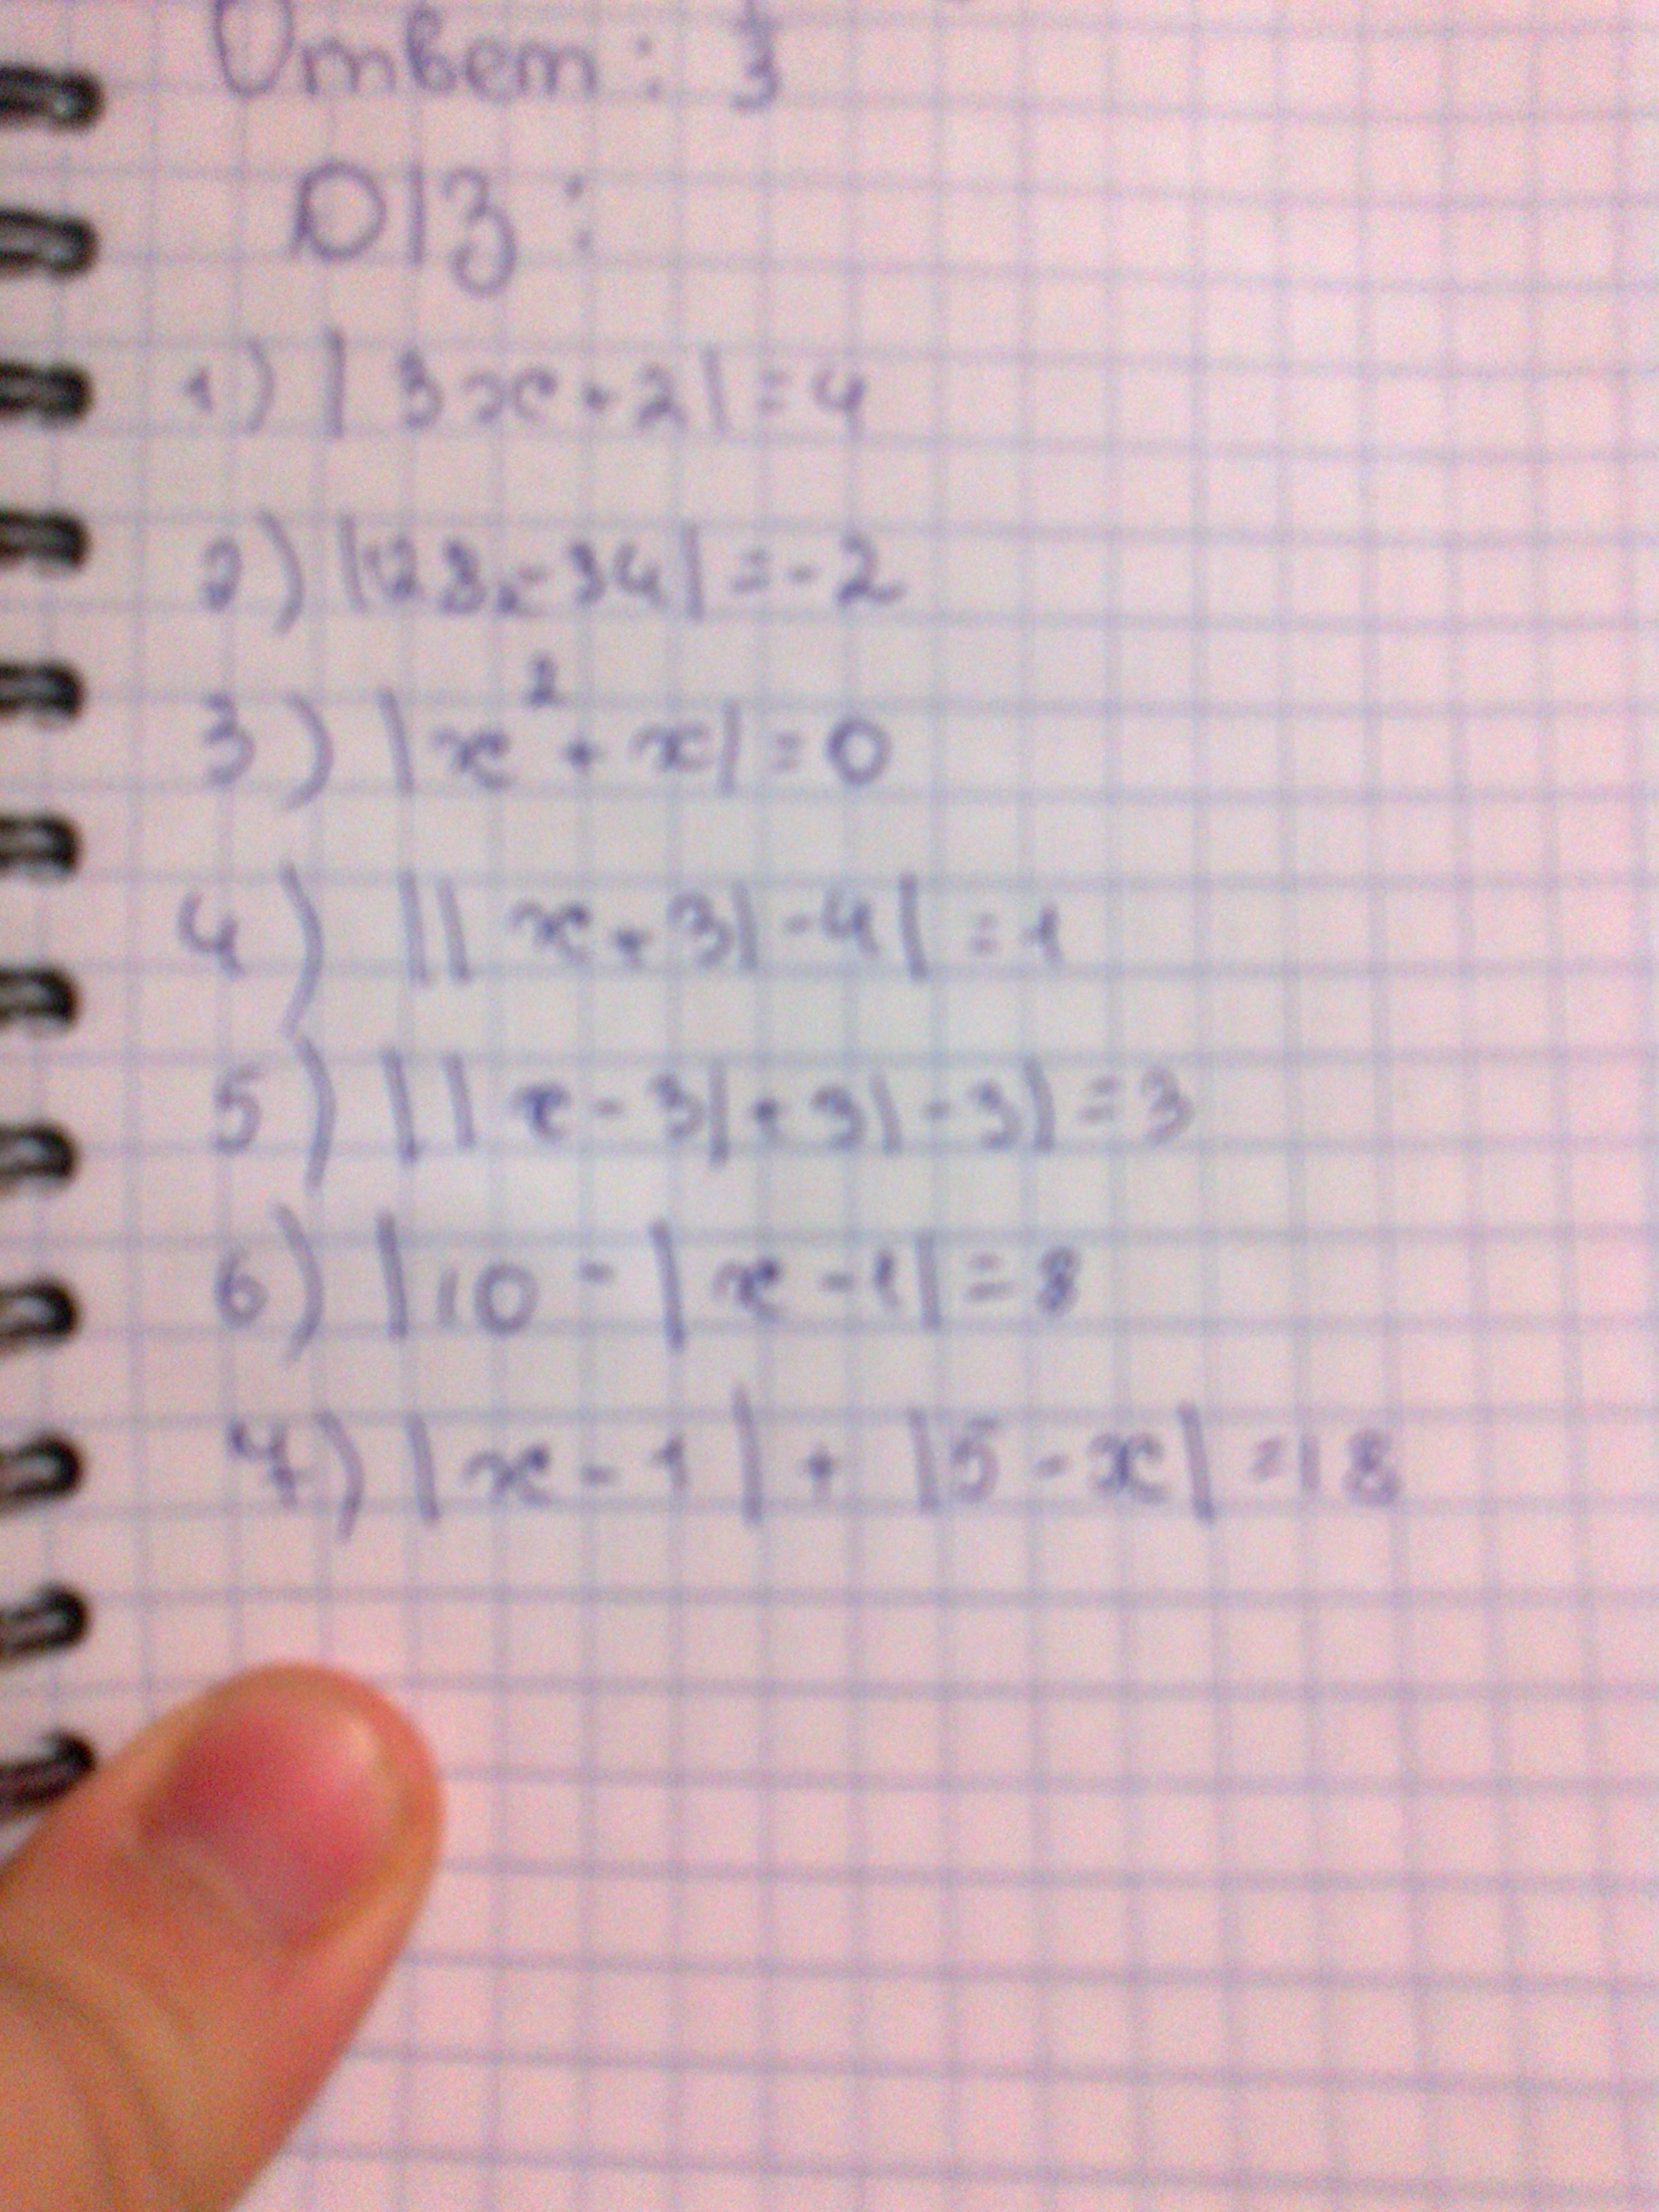 Ответ: 1/3
D|З:
1) |3x+2|=4
2) |123x-34|=-2
3) |x²+x|=0
4) ||x+3|-4|=1
5) ||x-3|+3|-3|=3
6) |10-|x-1|=8
7) |x-1|+|5-x|=18